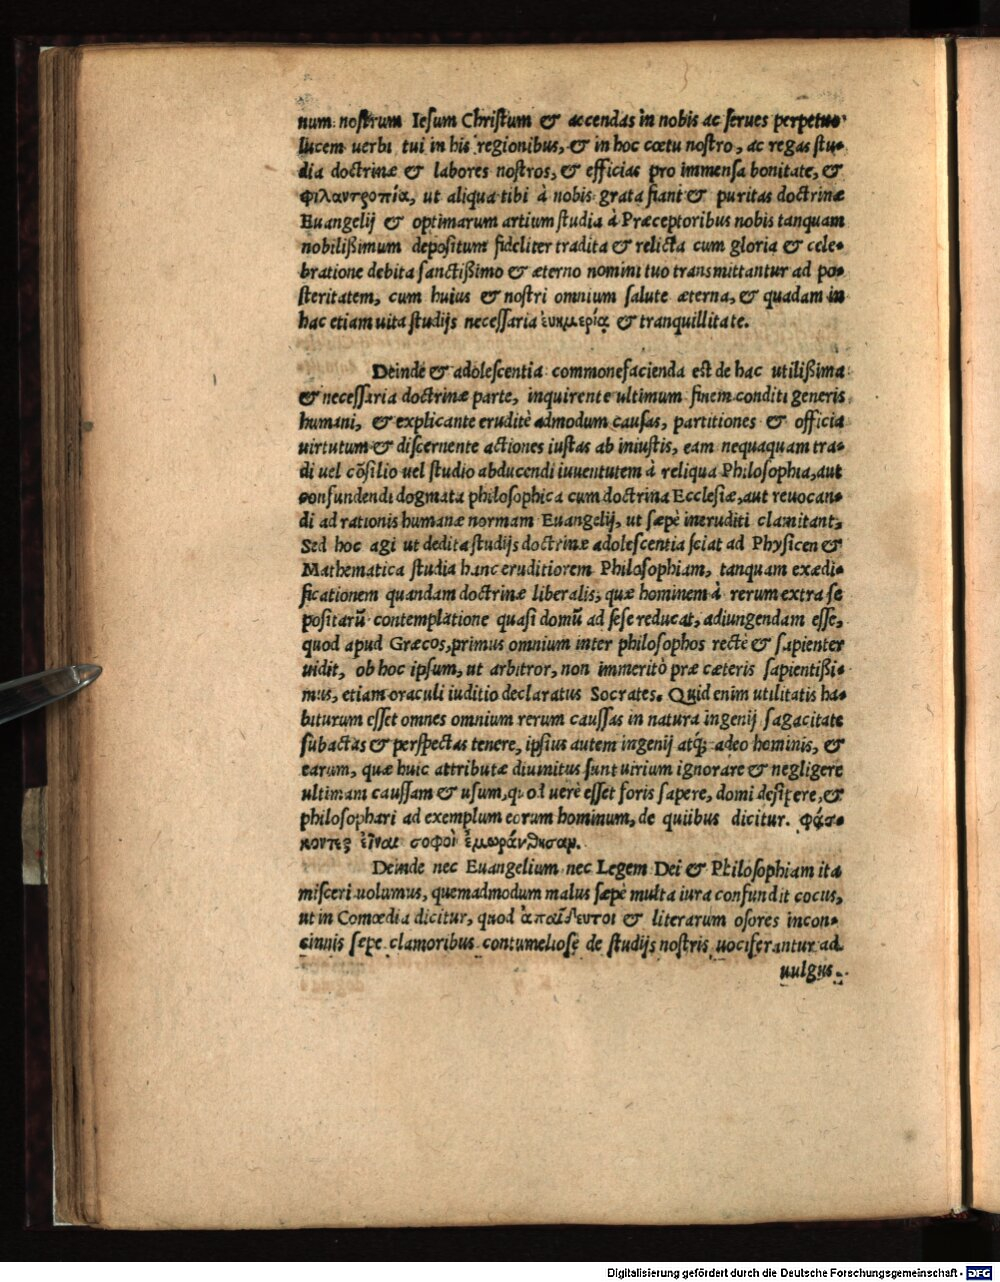 num nostrum Iesum Christum & accendas in nobis ac serues perpetuo
lucem uerbi tui in his regionibus, & in hoc cœtu nostro, ac regas stu-
dia doctrinæ & labores nostros, & efficias pro immensa bonitate, &
φιλαντροπία, ut aliqua tibi à nobis grata fiant & puritas doctrinæ
Euangelij & optimarum artium studia à Præceptoribus nobis tanquam
nobilißimum depositum fideliter tradita & relicta cum gloria & cele-
bratione debita sanctißimo & æterno nomini tuo transmittantur ad po-
steritatem, cum huius & nostri omnium salute æterna, & quadam in
hac etiam uita studijs necessaria ἐυημερίᾳ & tranquillitate.
Deinde & adolescentia commonefacienda est de hac utilißima
& necessaria doctrinæ parte, inquirente ultimum finem conditi generis
humani, & explicante eruditè admodum causas, partitiones & officia
uirtutum & discernente actiones iustas ab iniustis, eam nequaquam tra-
di uel cõsilio uel studio abducendi iuuentutem à reliqua Philosophia, aut
confundendi dogmata philosophica cum doctrina Ecclesiæ, aut reuocan-
di ad rationis humanæ normam Euangelij, ut sæpè ineruditi clamitant,
Sed hoc agi ut dedita studijs doctrinæ adolescentia sciat ad Physicen &
Mathematica studia hanc eruditiorem Philosophiam, tanquam exædi-
ficationem quandam doctrinæ liberalis, quæ hominem à rerum extra se
positarũ contemplatione quasi domũ ad sese reducat, adiungendam esse,
quod apud Græcos, primus omnium inter philosophos rectè & sapienter
uidit, ob hoc ipsum, ut arbitror, non immeritò præ cæteris sapientißi-
mus, etiam oraculi iuditio declaratus Socrates. Quid enim utilitatis ha-
biturum esset omnes omnium rerum caussas in natura ingenij sagacitate
subactas & perspectas tenere, ipsius autem ingenij atq́; adeo hominis, &
earum, quæ huic attributæ diuinitus sunt uirium ignorare & negligere
ultimam caussam & usum, quod uerè esset foris sapere, domi desipere, &
philosophari ad exemplum eorum hominum, de quiibus dicitur. φάσ-
κοντες εἶναι σοφοὶ ἐμωράνθησαν.
Deinde nec Euangelium nec Legem Dei & Philosophiam ita
misceri uolumus, quemadmodum malus sæpè multa iura confundit cocus,
ut in Comœdia dicitur, quod ἀπαίδευτοι & literarum osores incon-
cinnis sepe clamoribus contumeliosè de studijs nostris uociferantur ad
uulgus.
Digitalisierung gefördert durch die Deutsche Forschungsgemeinschaft - DFG